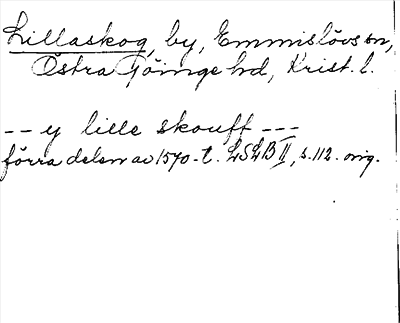 Lillaskog, by, Emmislövs sn,
Östra Göinge hd, Krist. l.
-- y lille skouff ---
förra delen av 1570-t. LSLB II, s. 112. orig.